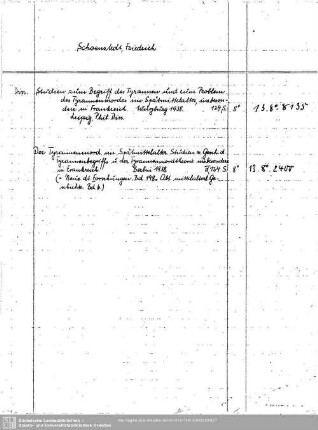 Schoenstedt, Friedrich
Diss. Studien zum Begriff des Tyrannen und zum Problem
des Tyrannenmordes im Spätmittelalter, insbeson-
dere in Frankreich Würzburg 1938. 124 S. 8° 13. 8° 8135
Leipzig, Phil. Diss.
Der Tyrannenmord im Spätmittelalter. Studien z. Gesch. d.
Tyrannenbegriffs u. der Tyrannenmordtheorie insbesondere
in Frankreich Berlin 1938 124 S 8° 13. 8°. 2400
(= Neue dt. Forschungen. Bd. 198. Abt. mittelalterl. Ge-
schichte. Bd 6.)
Sächsische Landesbibliothek -
Staats- und Universitätsbibliothek Dresden